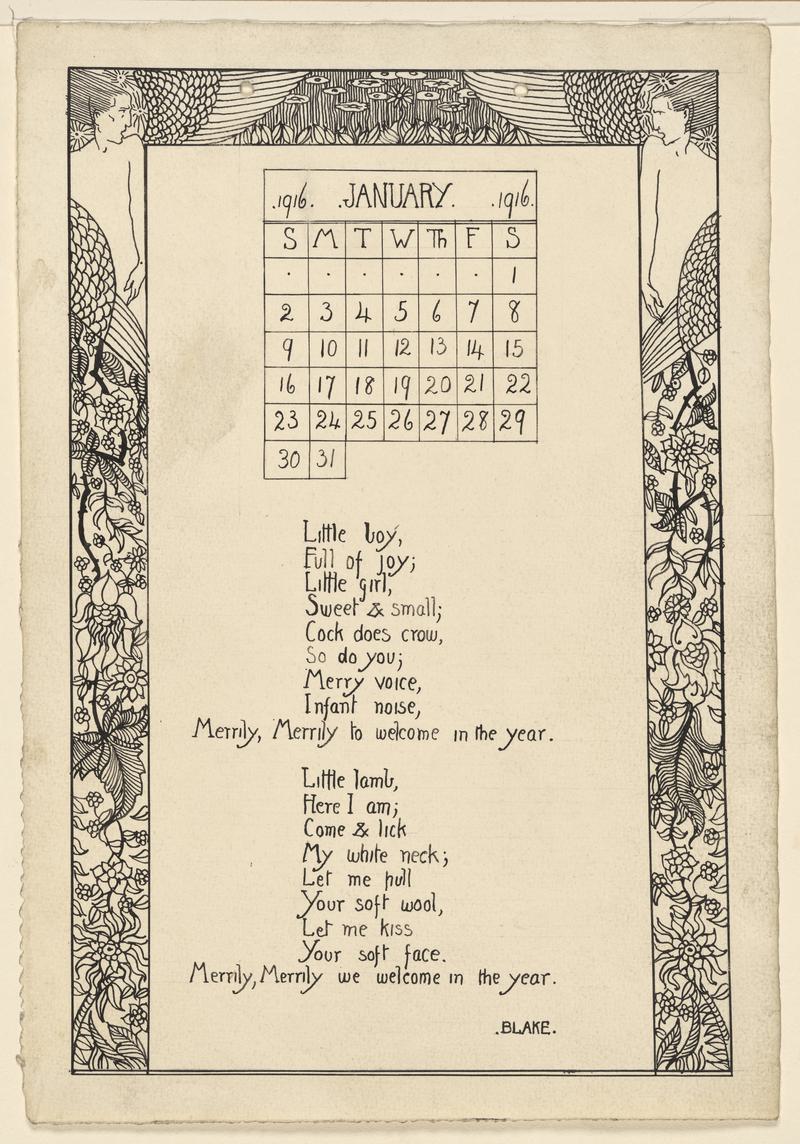 .1916. .JANUARY. .1916.
S M T W Th F S
. . . . . . 1
2 3 4 5 6 7 8
9 10 11 12 13 14 15
16 17 18 19 20 21 22
23 24 25 26 27 28 29
30 31
Little boy,
Full of joy;
Little girl,
Sweet & small;
Cock does crow,
So do you;
Merry voice,
Infant noise,
Merrily, Merrily to welcome in the year.
Little lamb,
Here I am;
Come & lick
My white neck;
Let me pull
Your soft wool,
Let me kiss
Your soft face.
Merrily, Merrily we welcome in the year.
.BLAKE.